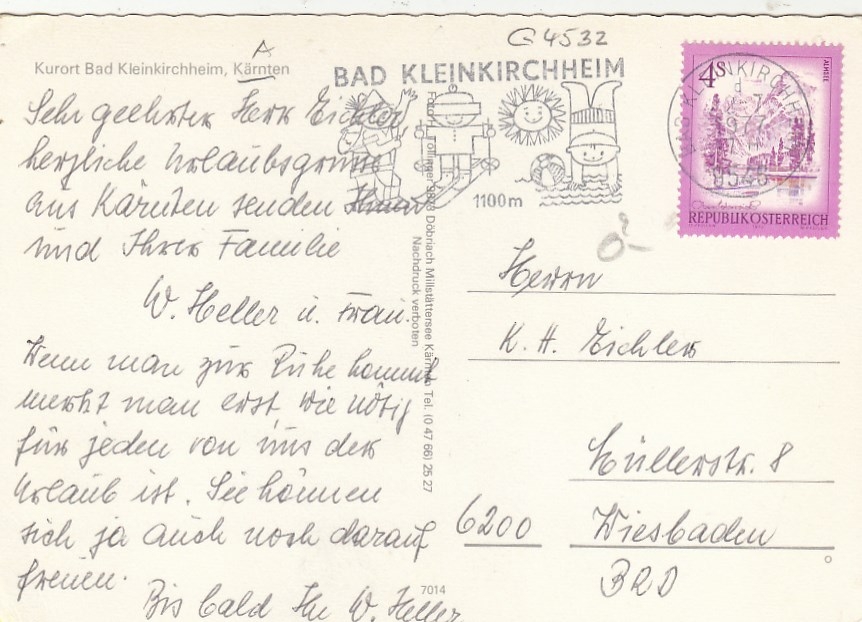 G 4532
A
Kurort Bad Kleinkirchheim, Kärnten
BAD KLEINKIRCHHEIM
1100m
4S
ALMSEE
REPUBLIK ÖSTERREICH
9546
Sehr geehrter Herr Eichler
herzliche Urlaubsgrüsse
aus Kärnten senden Ihnen
und Ihrer Familie
W. Heller u. Frau.
Wenn man zur Ruhe kommt
merkt man erst wie nötig
für jeden von uns der
Urlaub ist. Sie können
sich ja auch noch darauf
freuen.
Bis bald Ihr W. Heller
Döbriach Millstättersee Kärnten Tel. (0 47 66) 25 27
Nachdruck verboten
7014
Herrn
K. H. Eichler
Müllerstr. 8
6200 Wiesbaden
BRD